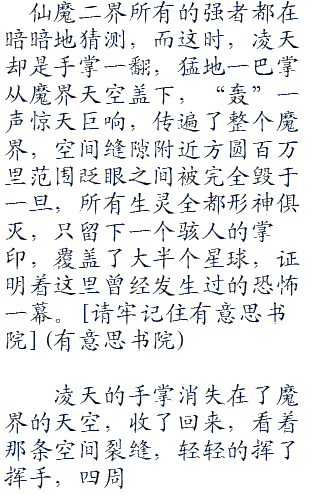 仙魔二界所有的强者都在
暗暗地猜测，而这时，凌天
却是手掌一翻，猛地一巴掌
从魔界天空盖下，“轰”一
声惊天巨响，传遍了整个魔
界，空间缝隙附近方圆百万
里范围眨眼之间被完全毁于
一旦，所有生灵全都形神俱
灭，只留下一个骇人的掌
印，覆盖了大半个星球，证
明着这里曾经发生过的恐怖
一幕。[请牢记住有意思书
院](有意思书院)
凌天的手掌消失在了魔
界的天空，收了回来，看着
那条空间裂缝，轻轻的挥了
挥手，四周